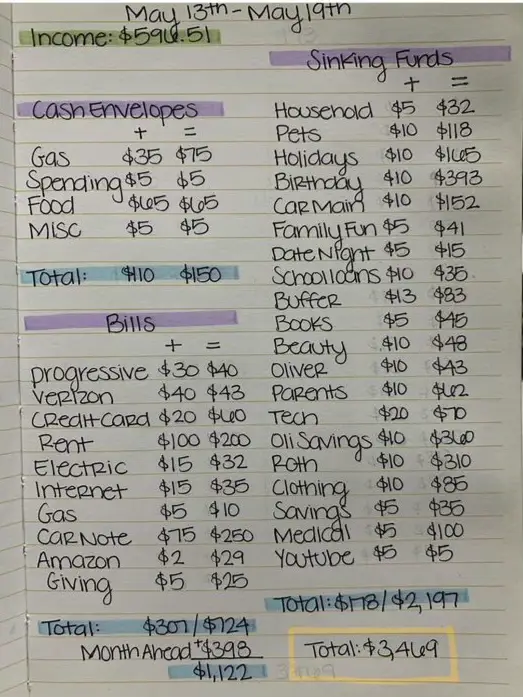 May 13th - May 19th
Income: $596.51
Cash Envelopes
+ =
Gas $35 $75
Spending $5 $5
Food $65 $65
Misc $5 $5
Total: $110 $150
Bills
+ =
progressive $30 $40
Verizon $40 $43
Credit Card $20 $60
Rent $100 $200
Electric $15 $32
Internet $15 $35
Gas $5 $10
Car Note $75 $250
Amazon $2 $29
Giving $5 $25
Total: $307/$724
Month Ahead +$398
$1,122
Sinking Funds
+ =
Household $5 $32
Pets $10 $118
Holidays $10 $165
Birthday $10 $393
Car Main $10 $152
Family Fun $5 $41
Date Night $5 $15
School loans $10 $35
Buffer $13 $83
Books $5 $45
Beauty $10 $48
Oliver $10 $43
Parents $10 $62
Tech $20 $70
Oli Savings $10 $360
Roth $10 $310
Clothing $10 $85
Savings $5 $35
Medical $5 $100
Youtube $5 $5
Total: $178/$2,197
Total: $3,469